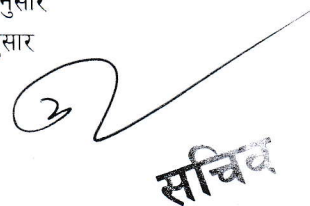 नुसार
सार
सचिव